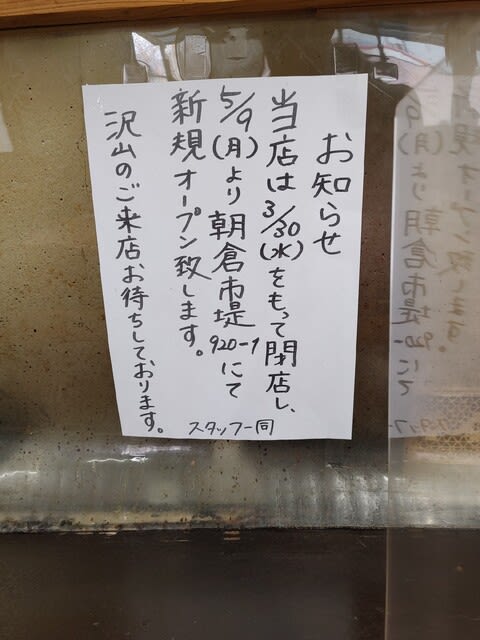 お知らせ
当店は3/30(水)をもって閉店し、
5/9(月)より朝倉市堤920-1にて
新規オープン致します。
沢山のご来店お待ちしております。
スタッフ一同